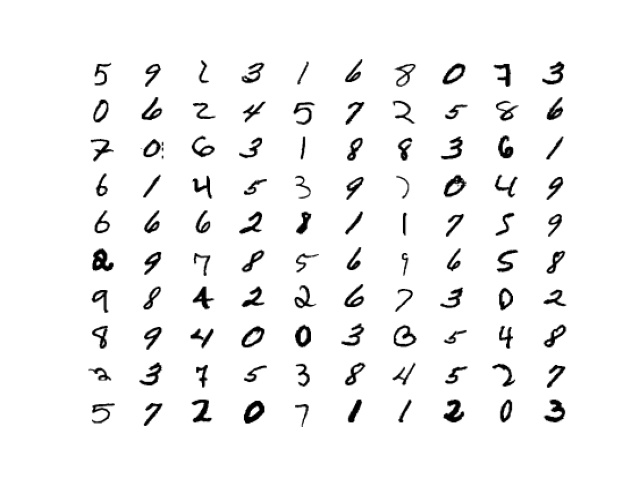 5 9 2 3 1 6 8 0 7 3
0 6 2 4 5 7 2 5 8 6
7 0 6 3 1 8 8 3 6 1
6 1 4 5 3 9 7 0 4 9
6 6 6 2 8 1 1 7 5 9
2 9 7 8 5 6 9 6 5 8
9 8 4 2 2 6 7 3 0 2
8 9 4 0 0 3 3 5 4 8
2 3 7 5 3 8 4 5 2 7
5 7 2 0 7 1 1 2 0 3